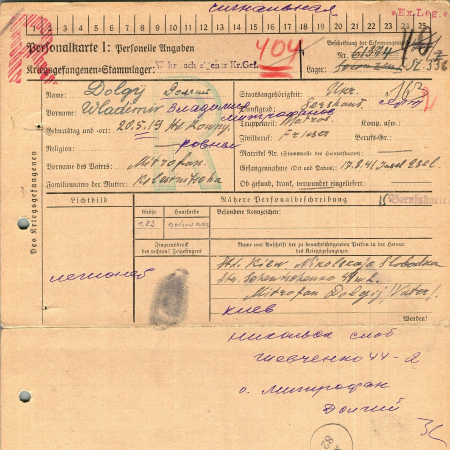 сигнальная
"Ex. Leg."
1 2 3 4 5 6 7 8 9 10 11 12 13 14 15 16 17 18 19 20 21 22 23 24 25
Personalkarte I: Personelle Angaben
Kriegsgefangenen-Stammlager:
404
Beschriftung der Erkennungsmarke
Nr. 61374
Lager:
Des Kriegsgefangenen
Name: Dolgij Долгий
Vorname: Wladimir Владимир
Митрофанов
Geburtstag und -ort: 20.5.19
Ровный
Religion:
Vorname des Vaters: Mitrofan
Familienname der Mutter:
Staatsangehörigkeit: Ukr.
Dienstgrad: Sershant серж
Truppenteil: Matros.
Zivilberuf: Friseur Berufs-Gr.:
Matrikel Nr. (Stammrolle des Heimatstaates):
Gefangennahme (Ort und Datum): 17.9.41 Insel Ösel
Ob gesund, krank, verwundet eingeliefert:
Lichtbild
Nähere Personalbeschreibung
Berufskarte
Größe
Haarfarbe
Besondere Kennzeichen:
schwarz
Fingerabdruck
des rechten! Zeigefingers
Name und Anschrift der zu benachrichtigenden Person in der Heimat
des Kriegsgefangenen
легионер
St. Kiew Nikolskaja Slobodka
Str. Schewtschenko 44
Mitrofan Dolgij /Vater/.
Wenden!
Киев
Никольск слоб
Шевченко 44-2
о. Митрофан
Долгий